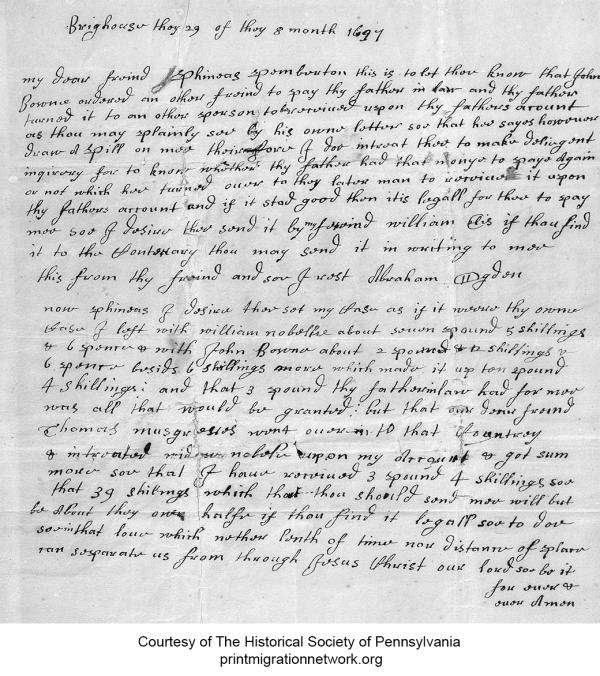 Brighouse they 29 of they 8 month 1697
my dear freind Phineas Pemberton this is to let thee know that John
Bowne ordered an other freind to pay thy father in law and thy father
turned it to an other person to be received upon thy fathers acount
as thou may plainly see by his owne letter soe that hee sayes however
draw A Bill on mee therefore I doe intreat thee to make deligent
inquirery for to know whether thy father had that monye to paye Again
or not which hee turned over to they later man to receive it upon
thy fathers acount and if it stad good then itis legall for thee to pay
mee soe I desire thee send it by my freind william Elis if thou find
it to the Conterary thou may send it in writing to mee
this from thy freind and soe I rest Abraham Ogden
now Phineas I desire thee set my Case as if it weere thy owne
Case I left with william nobelle about seven pound 5 shillings
& 6 pence & with John Bowne about 2 pound & 12 shillings &
6 pence besids 6 shillings more which made it up ten pound
4 shillings: and that 3 pound thy father in law had for mee
was all that would be granted: but that our dear freind
Thomas musgreves went over in to that Countrey
& intreated nobelle upon my Account & got sum
more soe that I have received 3 pound 4 shillings soe
that 39 shillings which that thou should send mee will but
be About they one halfe if thou find it legall soe to doe
soe in that love which nether lenth of time nor distance of place
can sesparate us from through Jesus Christ our lord soe be it
for ever &
ever Amen
Courtesy of The Historical Society of Pennsylvania
printmigrationnetwork.org